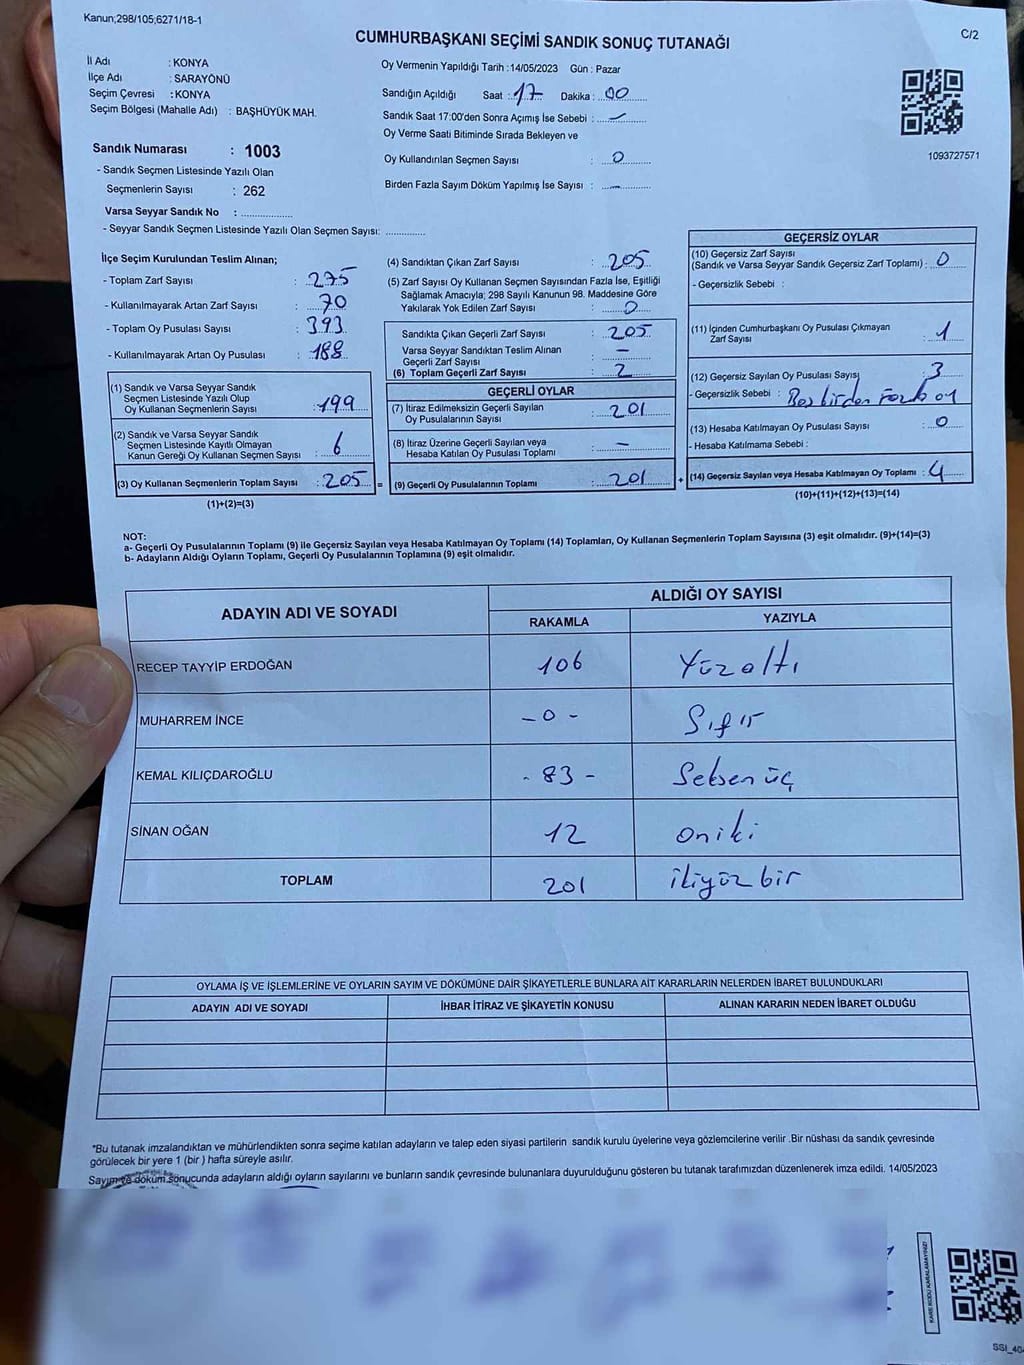 Kanun;298/105;6271/18-1
C/2
CUMHURBAŞKANI SEÇİMİ SANDIK SONUÇ TUTANAĞI
İl Adı : KONYA
İlçe Adı : SARAYÖNÜ
Seçim Çevresi : KONYA
Seçim Bölgesi (Mahalle Adı) : BAŞHÜYÜK MAH.
Oy Vermenin Yapıldığı Tarih :14/05/2023 Gün : Pazar
Sandığın Açıldığı Saat : 17 Dakika : 00
Sandık Saat 17:00'den Sonra Açımış İse Sebebi : –
Oy Verme Saati Bitiminde Sırada Bekleyen ve
Oy Kullandırılan Seçmen Sayısı : 0
Birden Fazla Sayım Döküm Yapılmış İse Sayısı : –
1093727571
Sandık Numarası : 1003
- Sandık Seçmen Listesinde Yazılı Olan
Seçmenlerin Sayısı : 262
Varsa Seyyar Sandık No :
- Seyyar Sandık Seçmen Listesinde Yazılı Olan Seçmen Sayısı:
İlçe Seçim Kurulundan Teslim Alınan;
- Toplam Zarf Sayısı : 275
- Kullanılmayarak Artan Zarf Sayısı : 70
- Toplam Oy Pusulası Sayısı : 393
- Kullanılmayarak Artan Oy Pusulası : 188
(1) Sandık ve Varsa Seyyar Sandık
Seçmen Listesinde Yazılı Olup
Oy Kullanan Seçmenlerin Sayısı : 199
(2) Sandık ve Varsa Seyyar Sandık
Seçmen Listesinde Kayıtlı Olmayan
Kanun Gereği Oy Kullanan Seçmen Sayısı : 6
(3) Oy Kullanan Seçmenlerin Toplam Sayısı : 205 =
(1)+(2)=(3)
(4) Sandıktan Çıkan Zarf Sayısı : 205
(5) Zarf Sayısı Oy Kullanan Seçmen Sayısından Fazla İse, Eşitliği
Sağlamak Amacıyla; 298 Sayılı Kanunun 98. Maddesine Göre
Yakılarak Yok Edilen Zarf Sayısı : 0
Sandıkta Çıkan Geçerli Zarf Sayısı : 205
Varsa Seyyar Sandıktan Teslim Alınan
Geçerli Zarf Sayısı : –
(6) Toplam Geçerli Zarf Sayısı : 2
GEÇERLİ OYLAR
(7) İtiraz Edilmeksizin Geçerli Sayılan
Oy Pusulasının Sayısı : 201
(8) İtiraz Üzerine Geçerli Sayılan veya
Hesaba Katılan Oy Pusulası Toplamı : –
(9) Geçerli Oy Pusulalarının Toplamı : 201 +
GEÇERSİZ OYLAR
(10) Geçersiz Zarf Sayısı
(Sandık ve Varsa Seyyar Sandık Geçersiz Zarf Toplamı) : 0
- Geçersizlik Sebebi :
(11) İçinden Cumhurbaşkanı Oy Pusulası Çıkmayan
Zarf Sayısı : 1
(12) Geçersiz Sayılan Oy Pusulası Sayısı : 3
- Geçersizlik Sebebi :
(13) Hesaba Katılmayan Oy Pusulası Sayısı : 0
- Hesaba Katılmama Sebebi :
(14) Geçersiz Sayılan veya Hesaba Katılmayan Oy Toplamı : 4
(10)+(11)+(12)+(13)=(14)
NOT:
a- Geçerli Oy Pusulalarının Toplamı (9) ile Geçersiz Sayılan veya Hesap Katılmayan Oy Toplamı (14) Toplamları, Oy Kullanan Seçmenlerin Toplam Sayısına (3) eşit olmalıdır. (9)+(14)=(3)
b- Adayların Aldığı Oyların Toplamı, Geçerli Oy Pusulalarının Toplamına (9) eşit olmalıdır.
ADAYIN ADI VE SOYADI
ALDIĞI OY SAYISI
RAKAMLA YAZIYLA
RECEP TAYYİP ERDOĞAN 106 Yüzaltı
MUHARREM İNCE – 0 – Sıfır
KEMAL KILIÇDAROĞLU - 83 - Seksen üç
SİNAN OĞAN 12 oniki
TOPLAM 201 ikiyüz bir
OYLAMA İŞ VE İŞLEMLERİNE VE OYLARIN SAYIM VE DÖKÜMÜNE DAİR ŞİKAYETLERLE BUNLARA AİT KARARLARIN NELERDEN İBARET BULUNDUKLARI
ADAYIN ADI VE SOYADI İHBAR İTİRAZ VE ŞİKAYETİN KONUSU ALINAN KARARIN NEDEN İBARET OLDUĞU
*Bu tutanak imzalandıktan ve mühürlendikten sonra seçime katılan adayların ve talep eden siyasi partilerin sandık kurulu üyelerine veya gözlemcilerine verilir .Bir nüshası da sandık çevresinde
görülecek bir yere 1 (bir ) hafta süreyle asılır.
Sayım ve döküm sonucunda adayların aldığı oyların sayılarını ve bunların sandık çevresinde bulunanlara duyurulduğunu gösteren bu tutanak tarafımızdan düzenlenerek imza edildi. 14/05/2023
KARE KODU KARALAMAYINIZ!
SSI_40